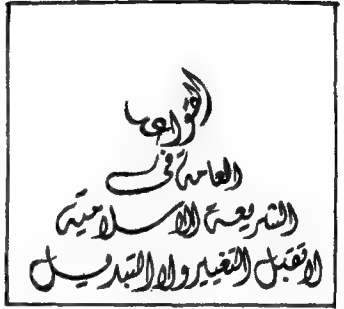 القواعد
العامة فى
الشريعة الاسلامية
لا تقبل التغيير ولا التبديل